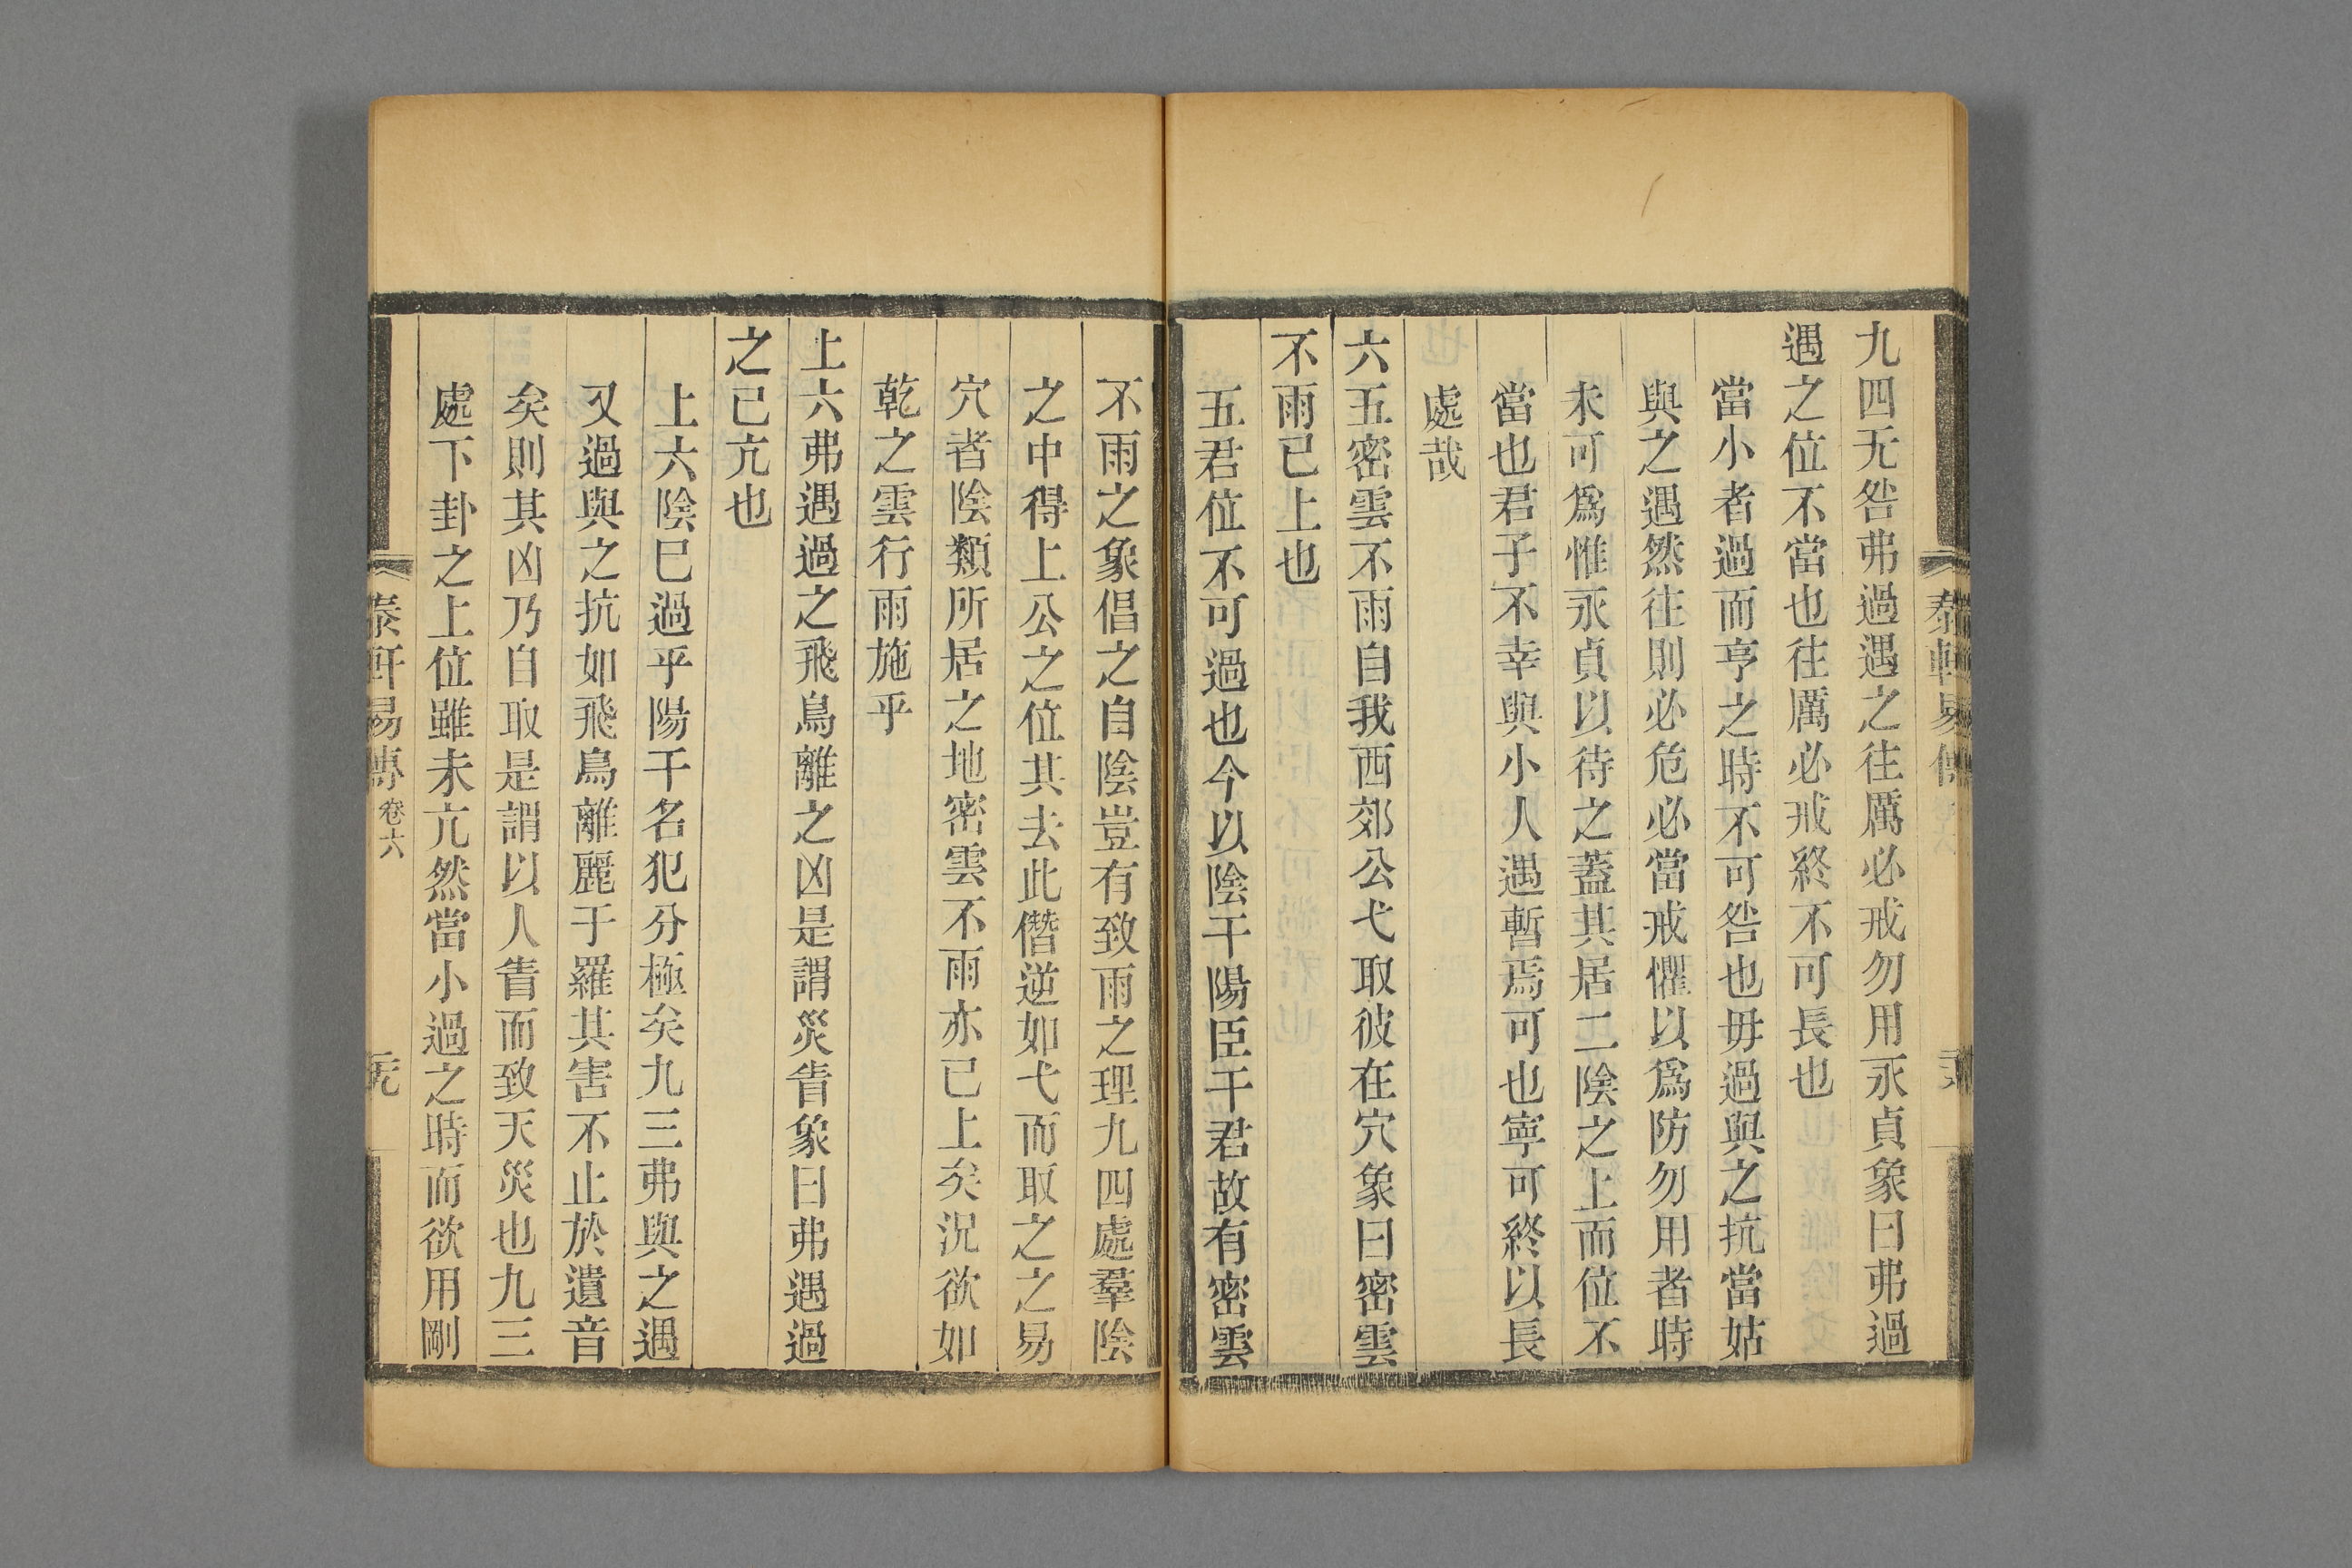 九四无咎弗過遇之往厲必戒勿用永貞象曰弗過
遇之位不當也往厲必戒終不可長也
當小者過而亨之時不可咎也毋過與之抗當姑
與之遇然往則必危必當戒懼以爲防勿用者時
未可爲惟永貞以待之蓋其居二陰之上而位不
當也君子不幸與小人遇暫焉可也寧可終以長
處哉
六五密雲不雨自我西郊公弋取彼在穴象曰密雲
不雨已上也
五君位不可過也今以陰干陽臣干君故有密雲
不雨之象倡之自陰豈有致雨之理九四處羣陰
之中得上公之位其去此僭逆如弋而取之之易
穴者陰類所居之地密雲不雨亦已上矣況欲如
乾之雲行雨施乎
上六弗遇過之飛鳥離之凶是謂災眚象曰弗遇過
之已亢也
上六陰巳過乎陽干名犯分極矣九三弗與之遇
又過與之抗如飛鳥離麗于羅其害不止於遺音
矣則其凶乃自取是謂以人眚而致天災也九三
處下卦之上位雖未亢然當小過之時而欲用剛
泰軒易傳 卷六